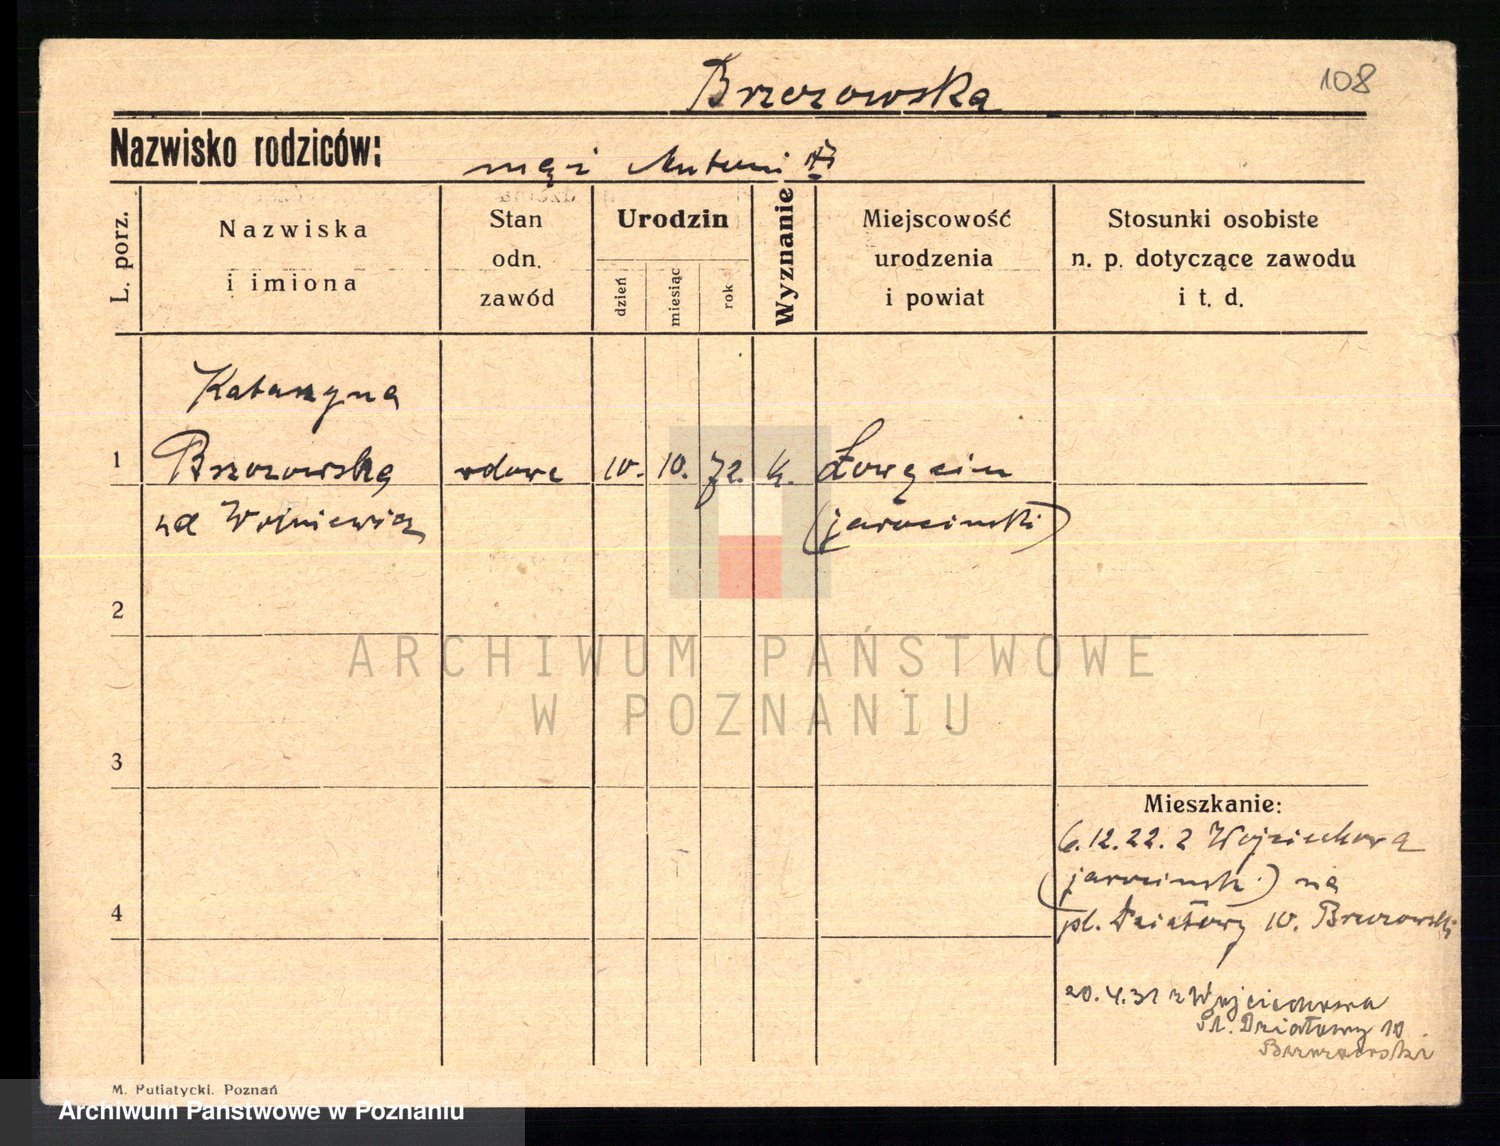 108
Brzozowska
Nazwisko rodziców:
mąż Antoni
L. porz.
Nazwiska
i imiona
Stan
odn.
zawód
Urodzin
dzień
miesiąc
rok
Wyznanie
Miejscowość
urodzenia
i powiat
Stosunki osobiste
n. p. dotyczące zawodu
i t. d.
Katarzyna
1 Brzozowska wdowa 10. 10. 72. k. Łowęcin
(jarociński)
2
3
4
Mieszkanie:
6.12.22. z Wojciechowa
(jarocinsk.) na
pl. Działowy 10. Brzozowski
20.4.31 z Wojciechowa
Pl. Działowy 10
Brzozowski
M. Putiatycki. Poznań
ARCHIWUM PAŃSTWOWE
W POZNANIU
Archiwum Państwowe w Poznaniu